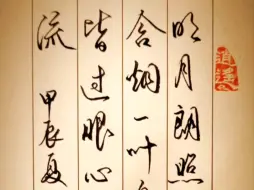 明月朗照
含烟一叶
皆过眼心
流
甲辰夏
逍遥